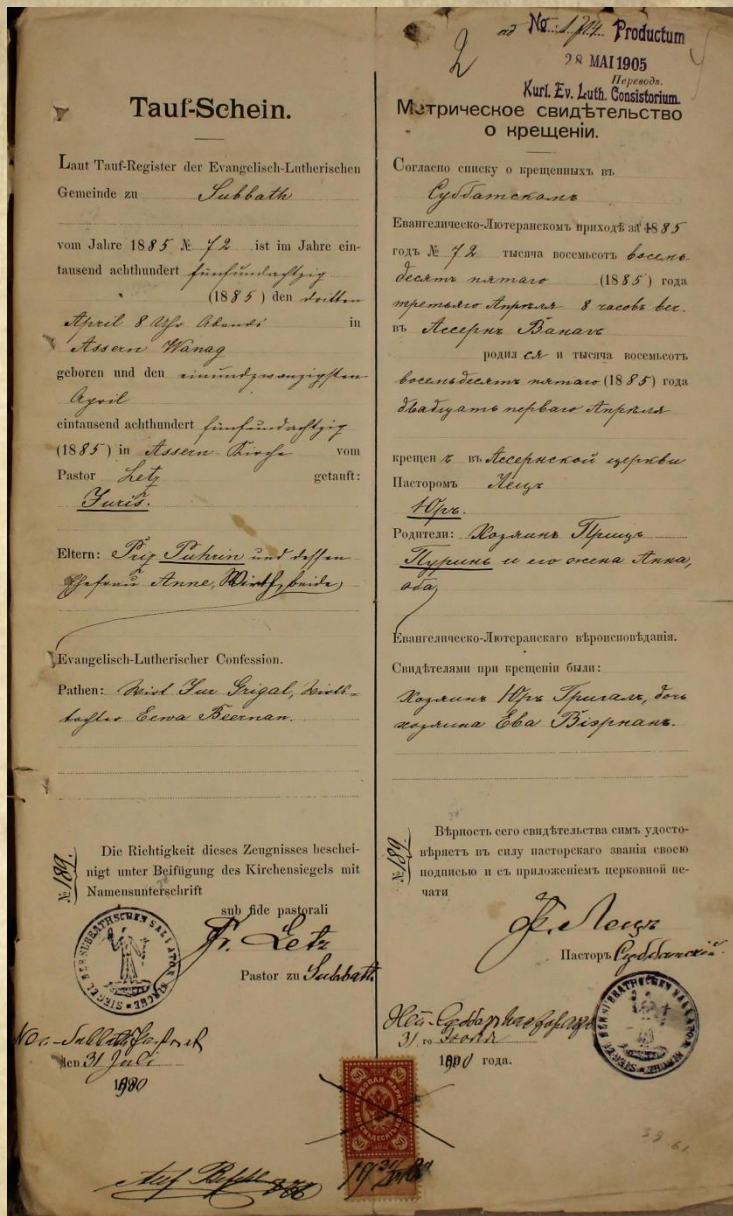 2
ad No 1714. Productum
28 MAI 1905
Переводъ.
Kurl. Ev. Luth. Consistorium.
Tauf-Schein.
Laut Tauf-Register der Evangelisch-Lutherischen
Gemeinde zu Subbath
vom Jahre 1885 № 72 ist im Jahre ein-
tausend achthundert fünfundachtzig
(1885) den dritten
April 8 Uhr Abends in
Assern Wanag
geboren und den einundzwanzigsten
April
eintausend achthundert fünfundachtzig
(1885) in Assern-Kirche vom
Pastor Letz getauft:
Juris.
Eltern: Priz Puhrin und dessen
Ehefrau Anne, Wirth, beide
Evangelisch-Lutherischer Confession.
Pathen: Wirt Jur Grigal, Wirths-
tochter Eewa Beernan.
№ 189.
Die Richtigkeit dieses Zeugnisses beschei-
nigt unter Beifügung des Kirchensiegels mit
Namensunterschrift
sub fide pastorali
Fr. Letz
Pastor zu Subbath
SIEGEL DER SUBBATHSCHEN SALVATOR KIRCHE
den 31 Juli
1900
Метрическое свидѣтельство
о крещеніи.
Согласно списку о крещенныхъ въ
Субботскомъ
Евангелическо-Лютеранскомъ приходѣ за 1885
годъ № 72 тысяча восемьсотъ восемь
десять пятаго (1885) года
третьяго Апрѣля 8 часовъ веч.
въ Ассернъ Ванагъ
родился и тысяча восемьсотъ
восемьдесятъ пятаго (1885) года
двадцать перваго Апрѣля
крещенъ въ Ассернской церкви
Пасторомъ Лецъ
Юръ.
Родители: Хозяинъ Прицъ
Пуринъ и его жена Анна,
оба
Евангелическо-Лютеранскаго вѣроисповѣданія.
Свидѣтелями при крещеніи были:
Хозяинъ Юръ Григалъ, дочь
хозяина Ева Бізрнанъ.
№ 189
Вѣрность сего свидѣтельства симъ удосто-
вѣряетъ въ силу пасторскаго званія своею
подписью и съ приложеніемъ церковной пе-
чати
Фр. Лецъ
Пасторъ Субботскій.
31. го Іюля
1900 года.
SIEGEL DER SUBBATHSCHEN SALVATOR KIRCHE